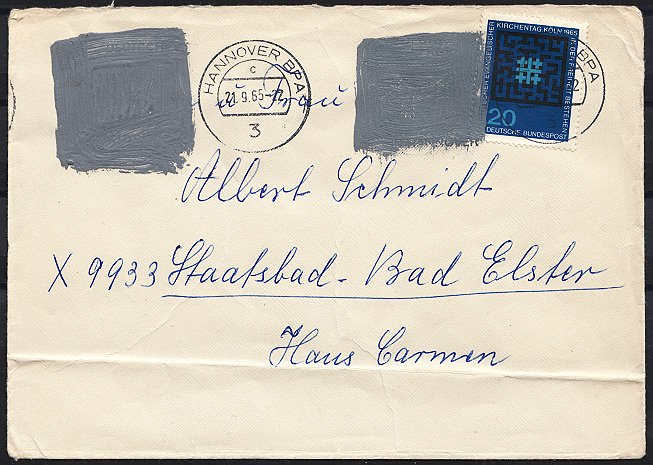 HANNOVER BPA
c
21.9.65-12
3
KIRCHENTAG KÖLN 1965
IN DER FREIHEIT BESTEHEN
20
DEUTSCHE BUNDESPOST
BPA
Frau
Albert Schmidt
X 9933 Staatsbad - Bad Elster
Haus Carmen